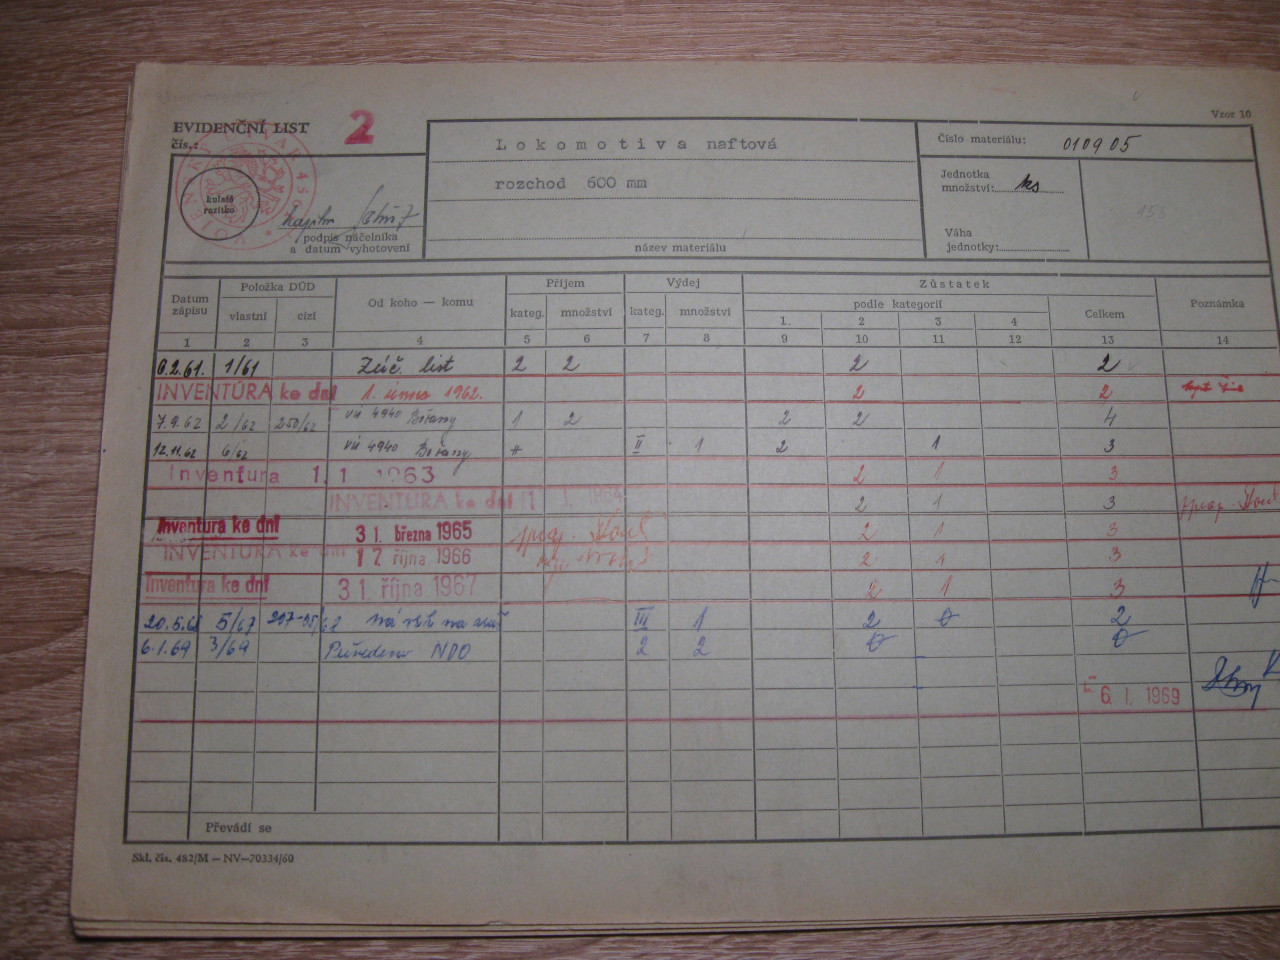 Vzor 10
EVIDENČNÍ LIST 2
čís.:
VOJENSKÝ ÚTVAR 4504
kulaté
razítko
podpis náčelníka
a datum vyhotovení
Lokomotiva naftová
rozchod 600 mm
název materiálu
Číslo materiálu: 010905
Jednotka
množství: ks
Váha
jednotky:
Datum zápisu Položka DÚD Od koho — komu Příjem Výdej Zůstatek Poznámka
vlastní cizí kateg. množství kateg. množství podle kategorií Celkem
1. 2 3 4
1 2 3 4 5 6 7 8 9 10 11 12 13 14
6.2.61. 1/61 Zúč. list 2 2 2 2
INVENTURA ke dni 1. února 1962. 2 2
7.9.62 2/62 250/62 VÚ 4940 Bořany 1 2 2 2 4
12.11.62 6/62 VÚ 4940 Bořany II 1 2 1 3
Inventura 1. 1 1963 2 1 3
INVENTURA ke dni 1 1964 2 1 3
Inventura ke dni 31. března 1965 2 1 3
INVENTURA ke dni 17 října 1966 2 1 3
Inventura ke dni 31. října 1967 2 1 3
20.5.68 5/67 III 1 2 0 2
6.1.69 3/69 NDO 2 2 0 0
6. I. 1969
Převádí se
Skl. čís. 482/M — NV—70334/60